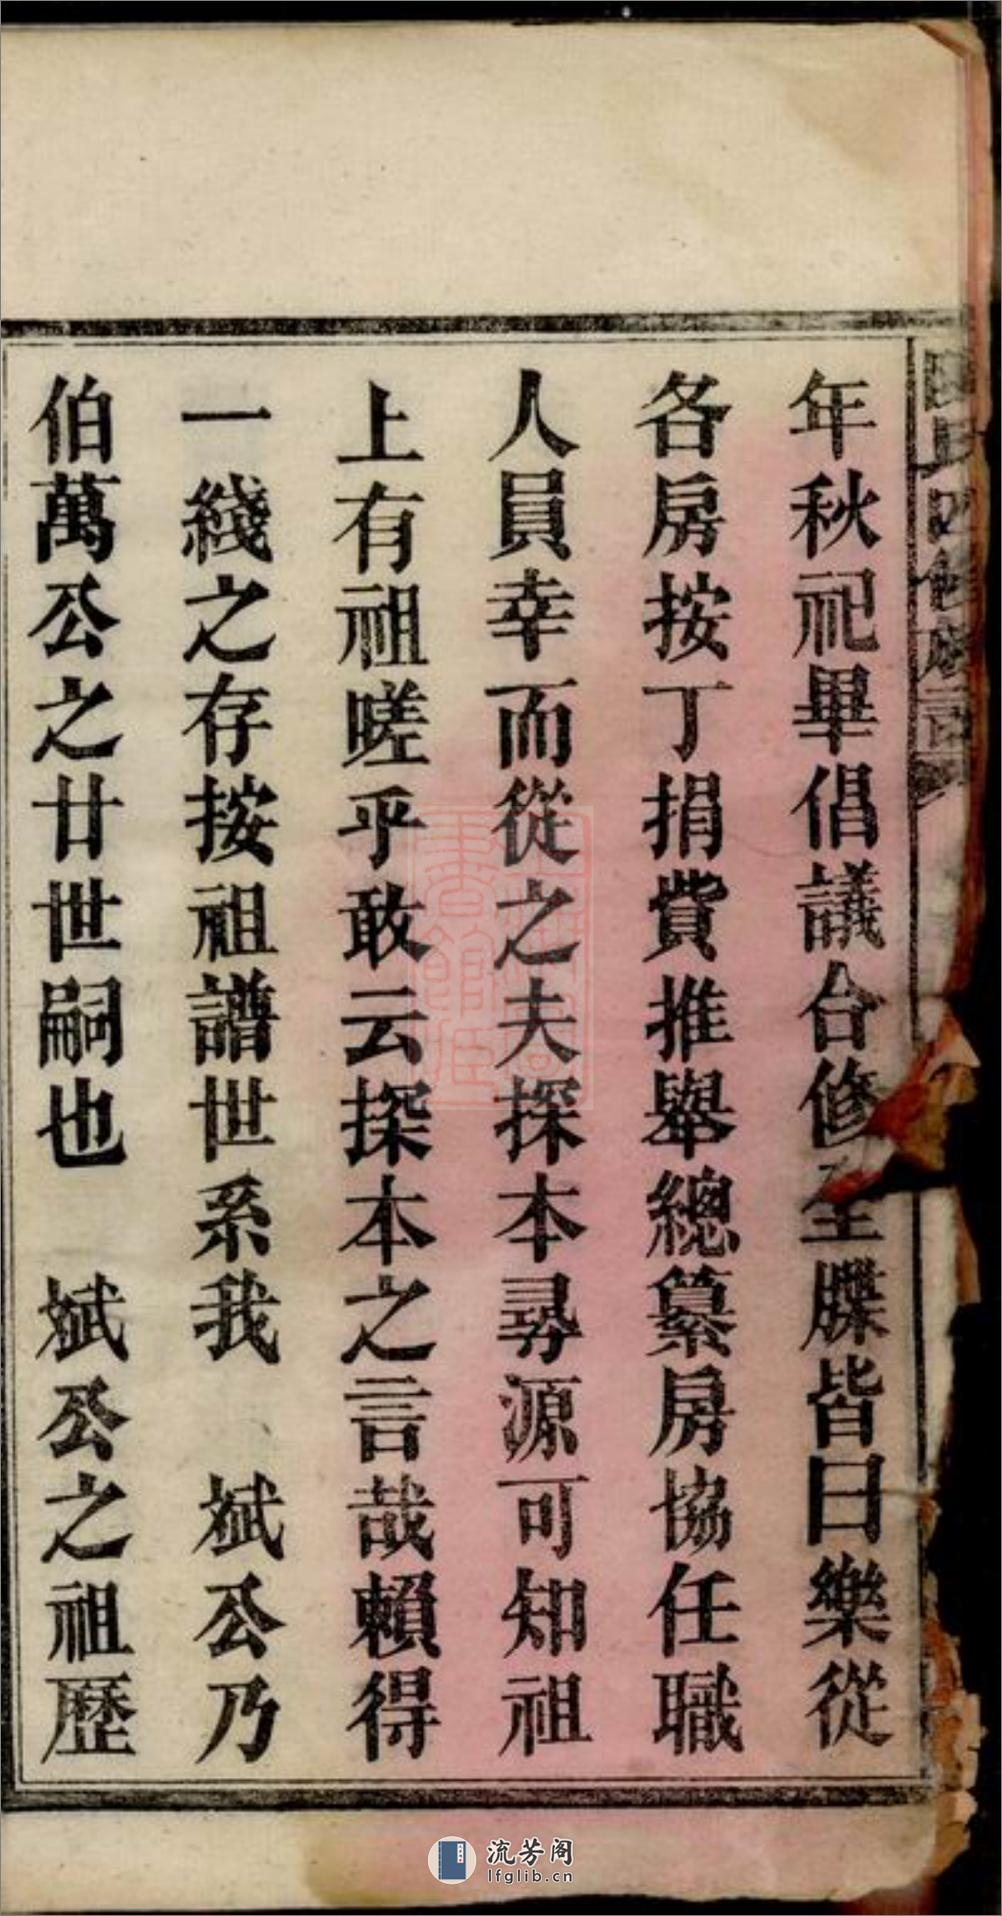 年秋祀畢倡議合修全牒皆曰樂從
各房按丁捐貲推舉總纂房協任職
人員幸而從之夫探本尋源可知祖
上有祖嗟乎敢云探本之言哉賴得
一綫之存按祖譜世系我　斌公乃
伯萬公之廿世嗣也　斌公之祖歷
流芳阁
lfglib.cn